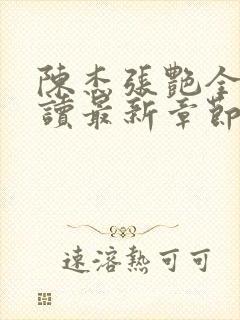 陳杰張艷全
讀最新章節
速溶熱可可